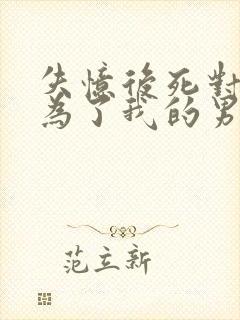 失憶後死對
為了我的男
范立新